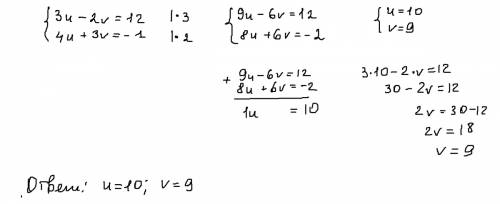 {3u - 2v = 12 | · 3
{4u + 3v = -1 | · 2
{9u - 6v = 12
{8u + 6v = -2
{u = 10
{v = 9
+ 9u - 6v = 12
8u + 6v = -2
1u = 10
3 · 10 - 2 · v = 12
30 - 2v = 12
2v = 30 - 12
2v = 18
v = 9
Ответ: u = 10; v = 9